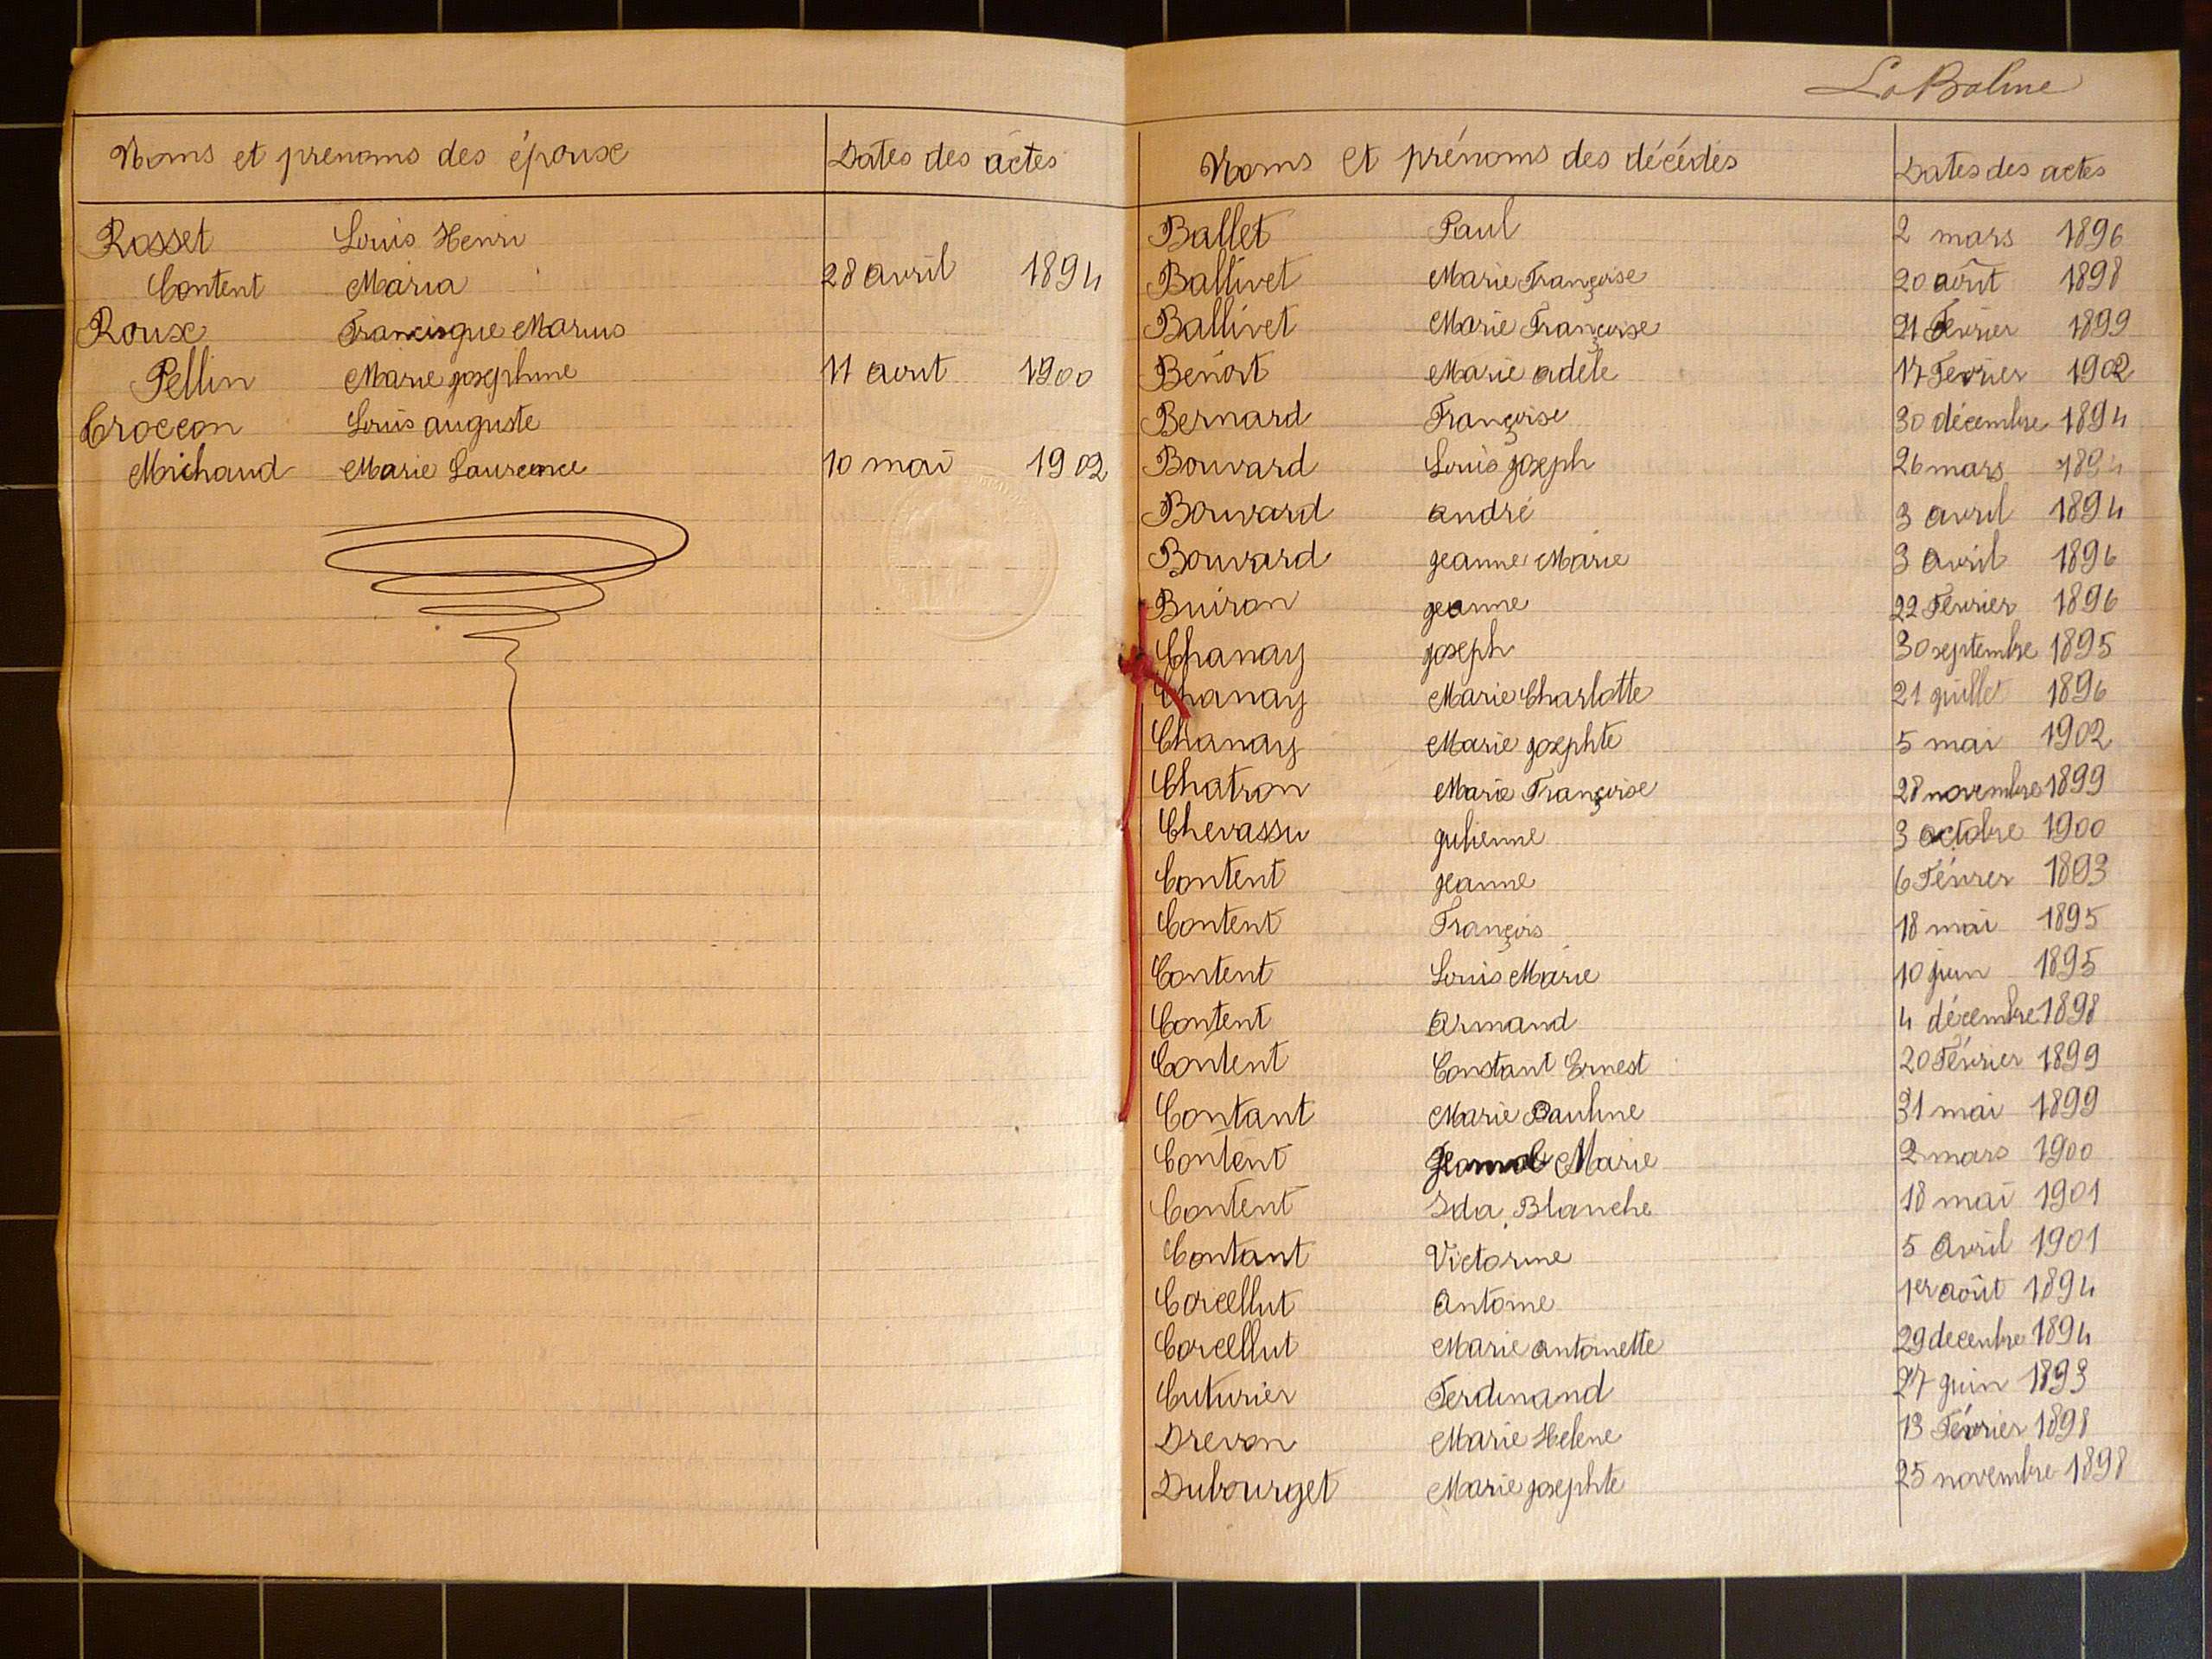 Noms et prenoms des époux Dates des actes
Rosset Louis Henri
Content Maria 28 avril 1894
Roux Francisque Marius
Pellin Marie josephine 11 aout 1900
Croccon Louis auguste
Michaud Marie Laurence 10 mai 1902
La Balme
Noms et prénoms des décédés Dates des actes
Ballet Paul 2 mars 1896
Ballivet Marie Françoise 20 août 1898
Ballivet Marie Françoise 21 Fevrier 1899
Benoit Marie adèle 17 Fevrier 1902
Bernard Françoise 30 décembre 1894
Bouvard Louis joseph 26 mars 1894
Bouvard andré 3 avril 1894
Bouvard jeanne Marie 3 avril 1896
Buiron jeanne 22 Fevrier 1896
Chanay joseph 30 septembre 1895
Chanay Marie Charlotte 21 juillet 1896
Chanay Marie josephte 5 mai 1902
Chatron Marie Françoise 28 novembre 1899
Chevassu julienne 3 octobre 1900
Content jeanne 6 Févrer 1893
Content François 18 mai 1895
Content Louis Marie 10 juin 1895
Content Armand 4 décembre 1898
Content Constant Ernest 20 Février 1899
Contant Marie Pauline 31 mai 1899
Content Marie 2 mars 1900
Content Ida Blanche 18 mai 1901
Contant Victorine 5 Avril 1901
Corcellut Antoine 1er août 1894
Corcellut Marie antoinette 29 decembre 1894
Cuturier Ferdinand 27 juin 1893
Drevon Marie Helene 13 Février 1898
Dubourget Marie josephte 25 novembre 1898